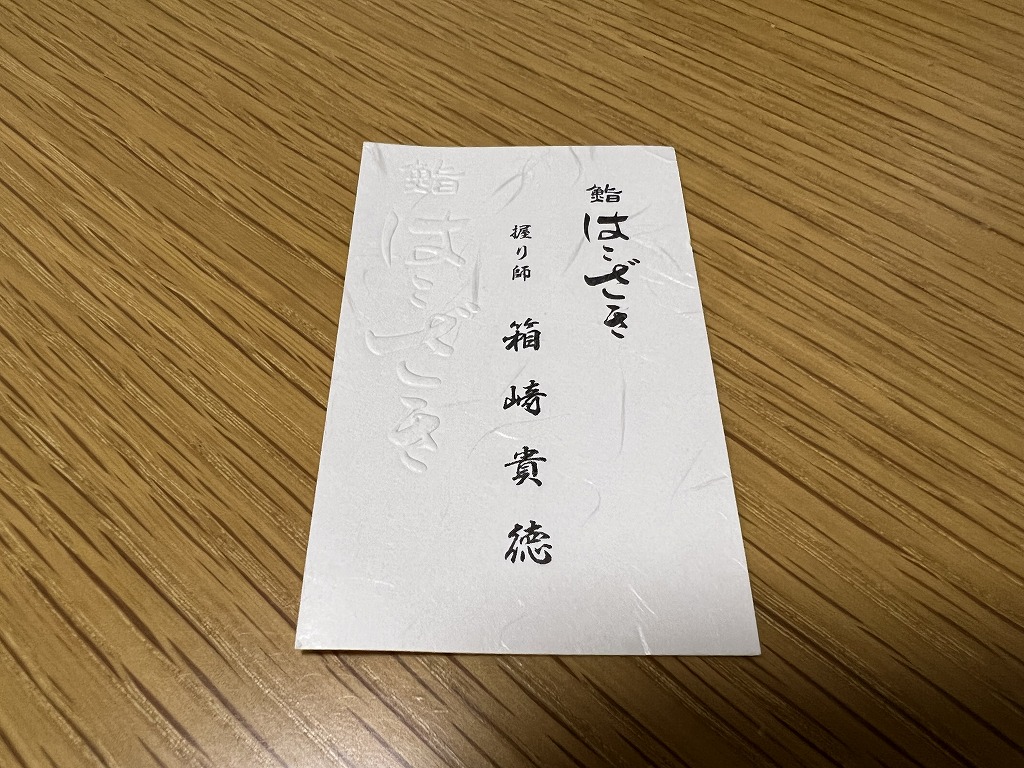 鮨
はこざき
握り師
箱崎貴徳
鮨
はこざき